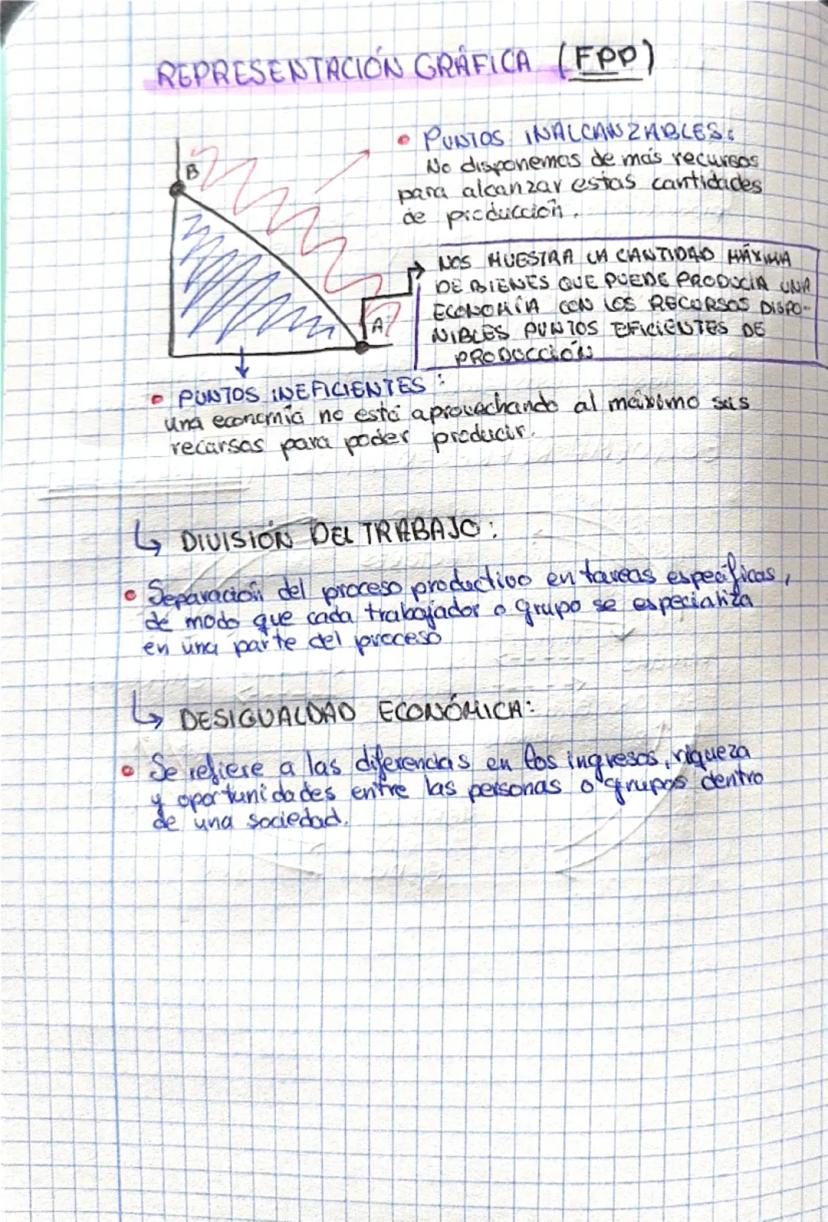 REPRESENTACIÓN GRÁFICA (FPP)
• PUNTOS INALCANZABLES:
No disponemos de más recursos
para alcanzar estas cantidades
de producción.
B
A
NOS MUESTRA LA CANTIDAD MÁXIMA
DE BIENES QUE PUEDE PRODUCIR UNA
ECONOMÍA CON LOS RECURSOS DISPO-
NIBLES PUNTOS EFICIENTES DE
PRODUCCIÓN
• PUNTOS INEFICIENTES:
una economía no está aprovechando al máximo sus
recursos para poder producir.
↳ DIVISIÓN DEL TRABAJO:
• Separación del proceso productivo en tareas específicas,
de modo que cada trabajador o grupo se especializa
en una parte del proceso
↳ DESIGUALDAD ECONÓMICA:
• Se refiere a las diferencias en los ingresos, riqueza
y oportunidades entre las personas o grupos dentro
de una sociedad.